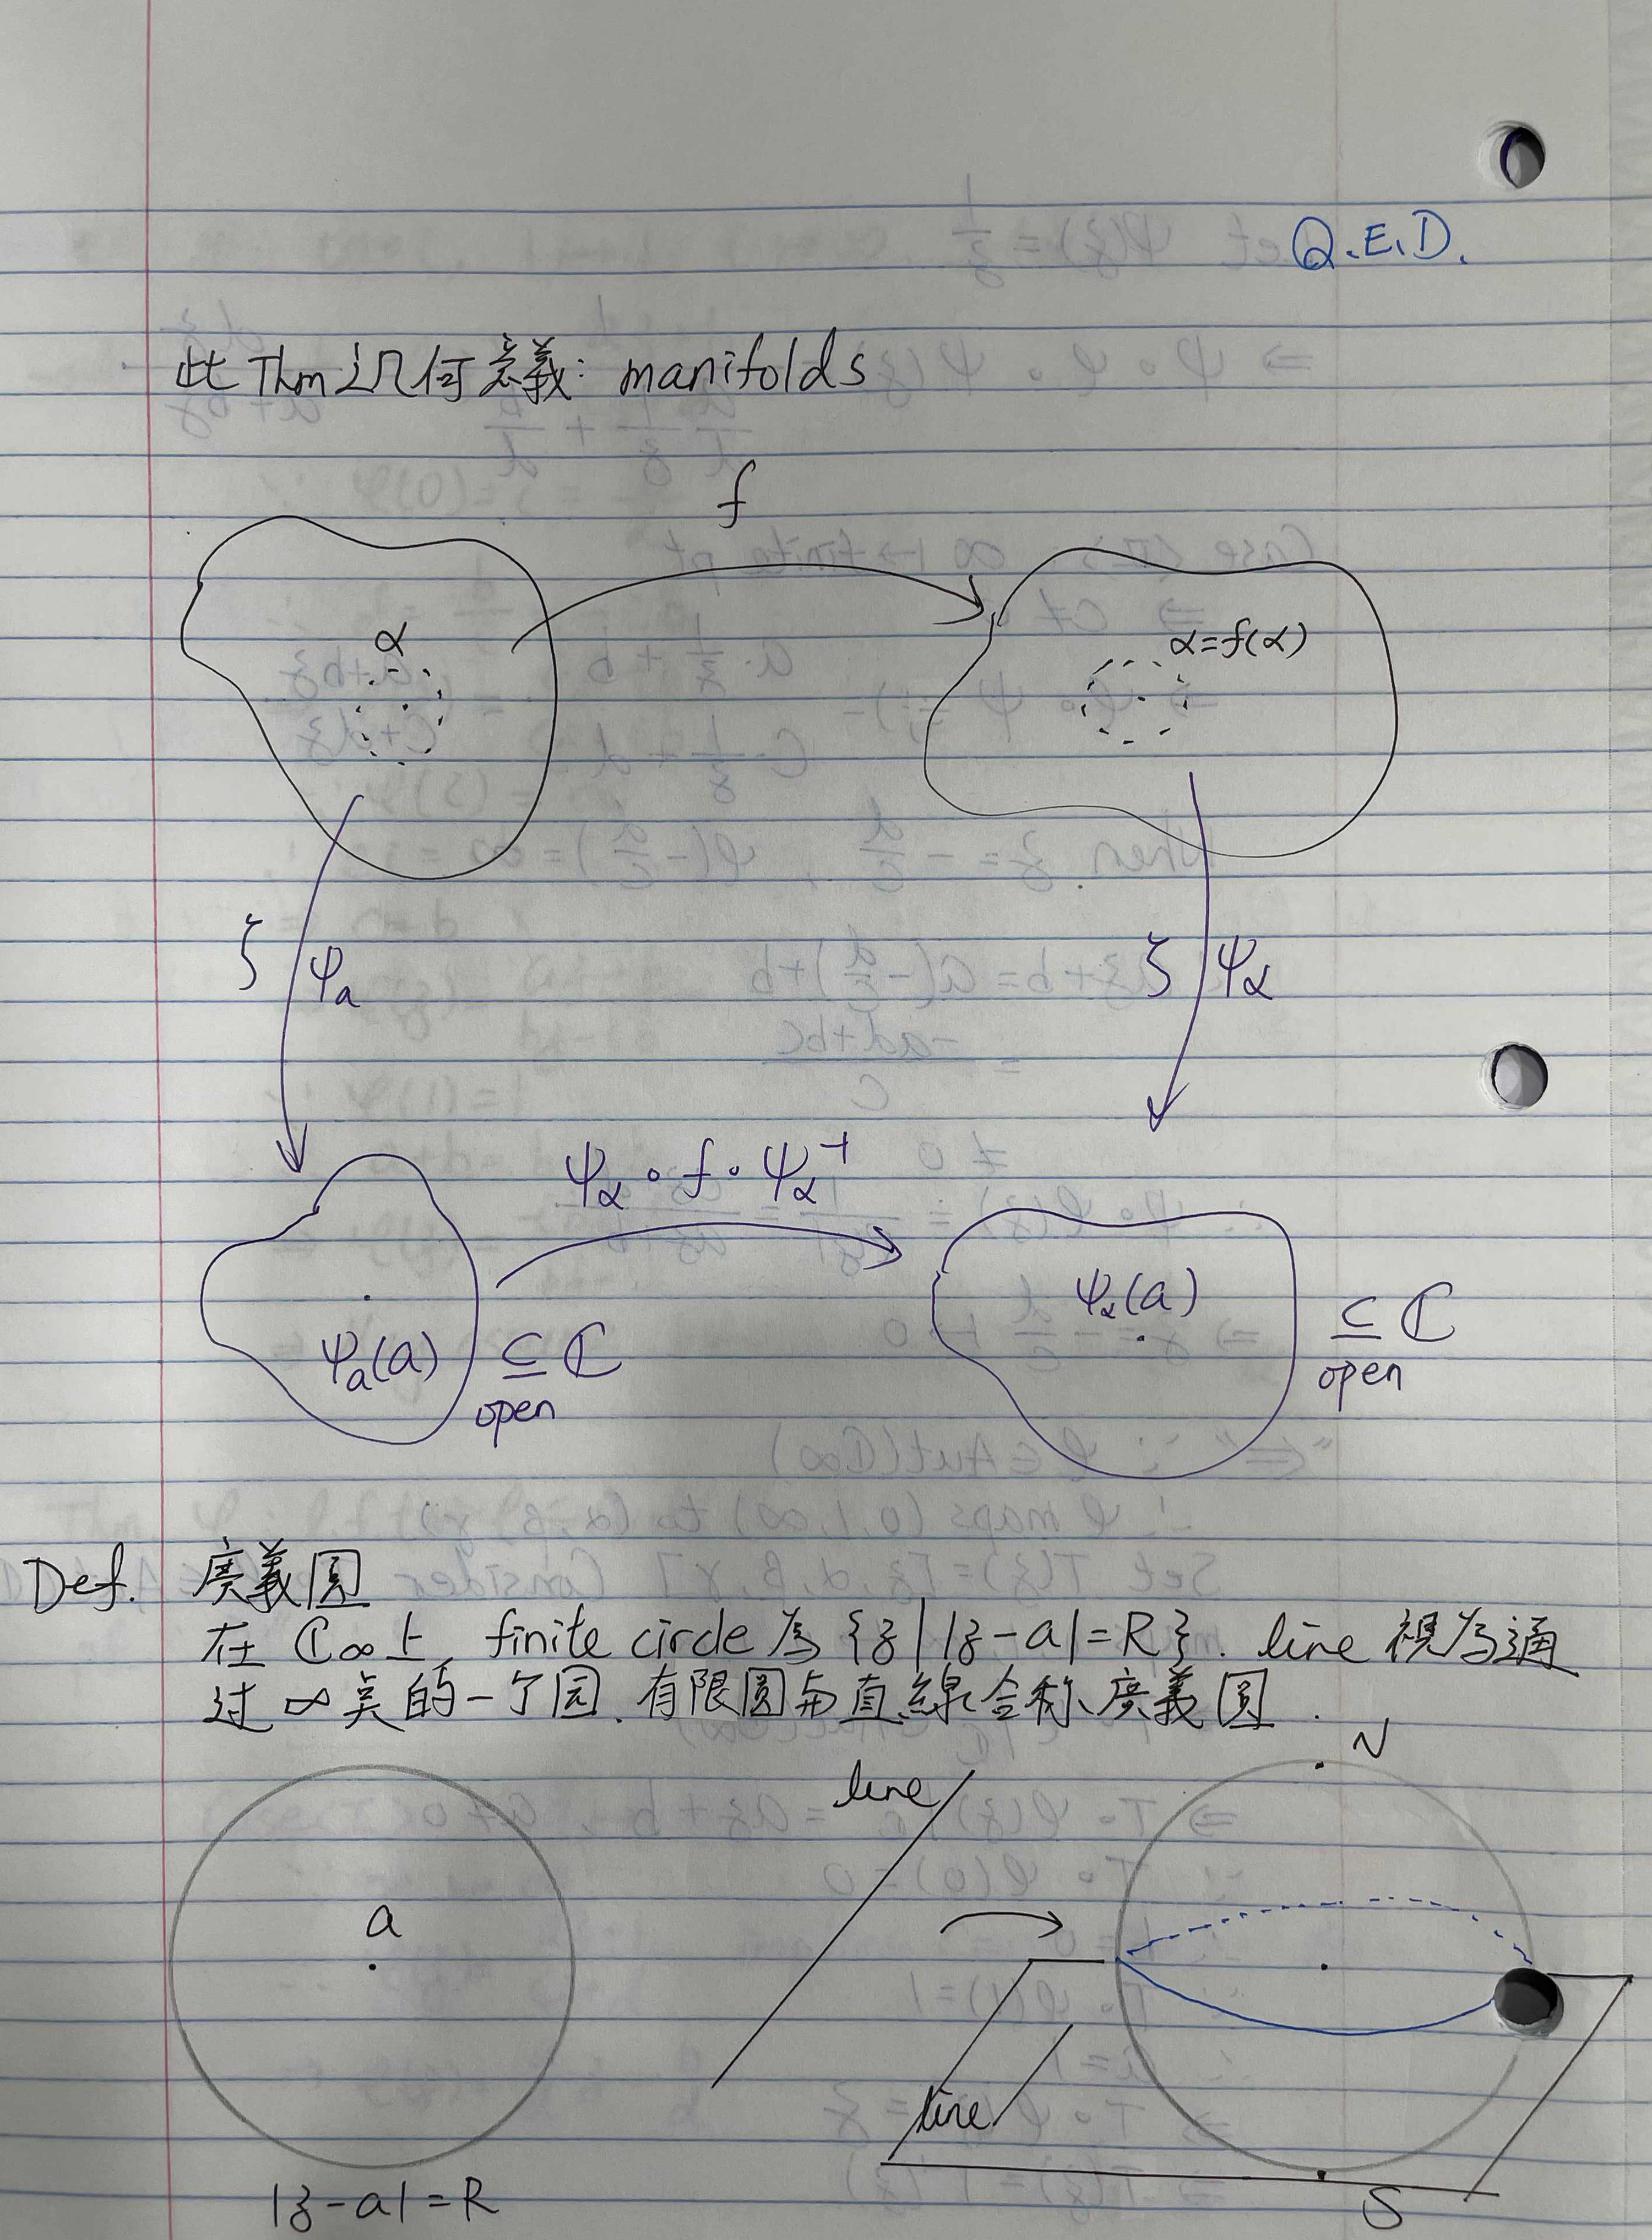 Q.E.D.
此 Thm 之几何意義: manifolds
f
α
α=f(α)
ζ ψₐ
ζ ψ_α
ψ_α ∘ f ∘ ψ_α⁻¹
ψₐ(a) ⊆ ℂ
open
ψ_α(a) ⊆ ℂ
open
Def. 廣義圓
在 ℂ∞上, finite circle 為 {z | |z-a|=R}. line 視为通
过 ∞ 点的一个园. 有限圓与直線合称廣義圓.
N
line
a
line
|z-a|=R
S